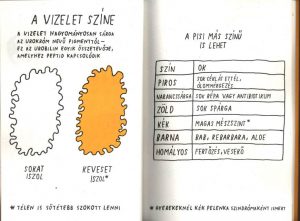 A VIZELET SZÍNE
A VIZELET HAGYOMÁNYOSAN SÁRGA
AZ UROKRÓM NEVŰ PIGMENTTŐL-
EZ AZ UROBILIN EGYIK ÖSSZETEVŐJE,
AMELYHEZ PEPTID KAPCSOLÓDIK
SOKAT
ISZOL
KEVESET
ISZOL*
* TÉLEN IS SÖTÉTEBB SZOKOTT LENNI
A PISI MÁS SZÍNŰ
IS LEHET
SZÍN OK
PIROS SOK CÉKLÁS ÉTEL,
ÓLOMMÉRGEZÉS
NARANCSSÁRGA SOK RÉPA VAGY ANTIBIOTIKUM
ZÖLD SOK SPÁRGA
KÉK MAGAS MÉSZSZINT*
BARNA BAB, REBARBARA, ALOE
HOMÁLYOS FERTŐZÉS, VESEKŐ
* GYEREKEKNÉL KÉK PELENKA SZINDRÓMAKÉNT ISMERT